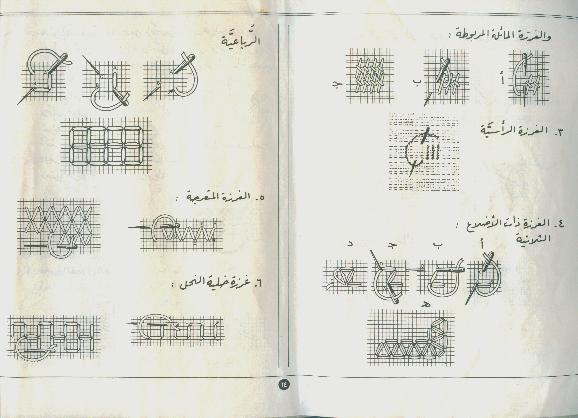 والغرزة المائلة المربوطة :
أ
ب
ج
٣. الغرزة الرأسيَّة
٤. الغرزة ذات الأضلاع :
الثلاثية
أ
ب
ج
د
هـ
الرُّباعيَّة
٥. الغرزة المتعرجة :
٦. غرزة خلية النحل :
١٤